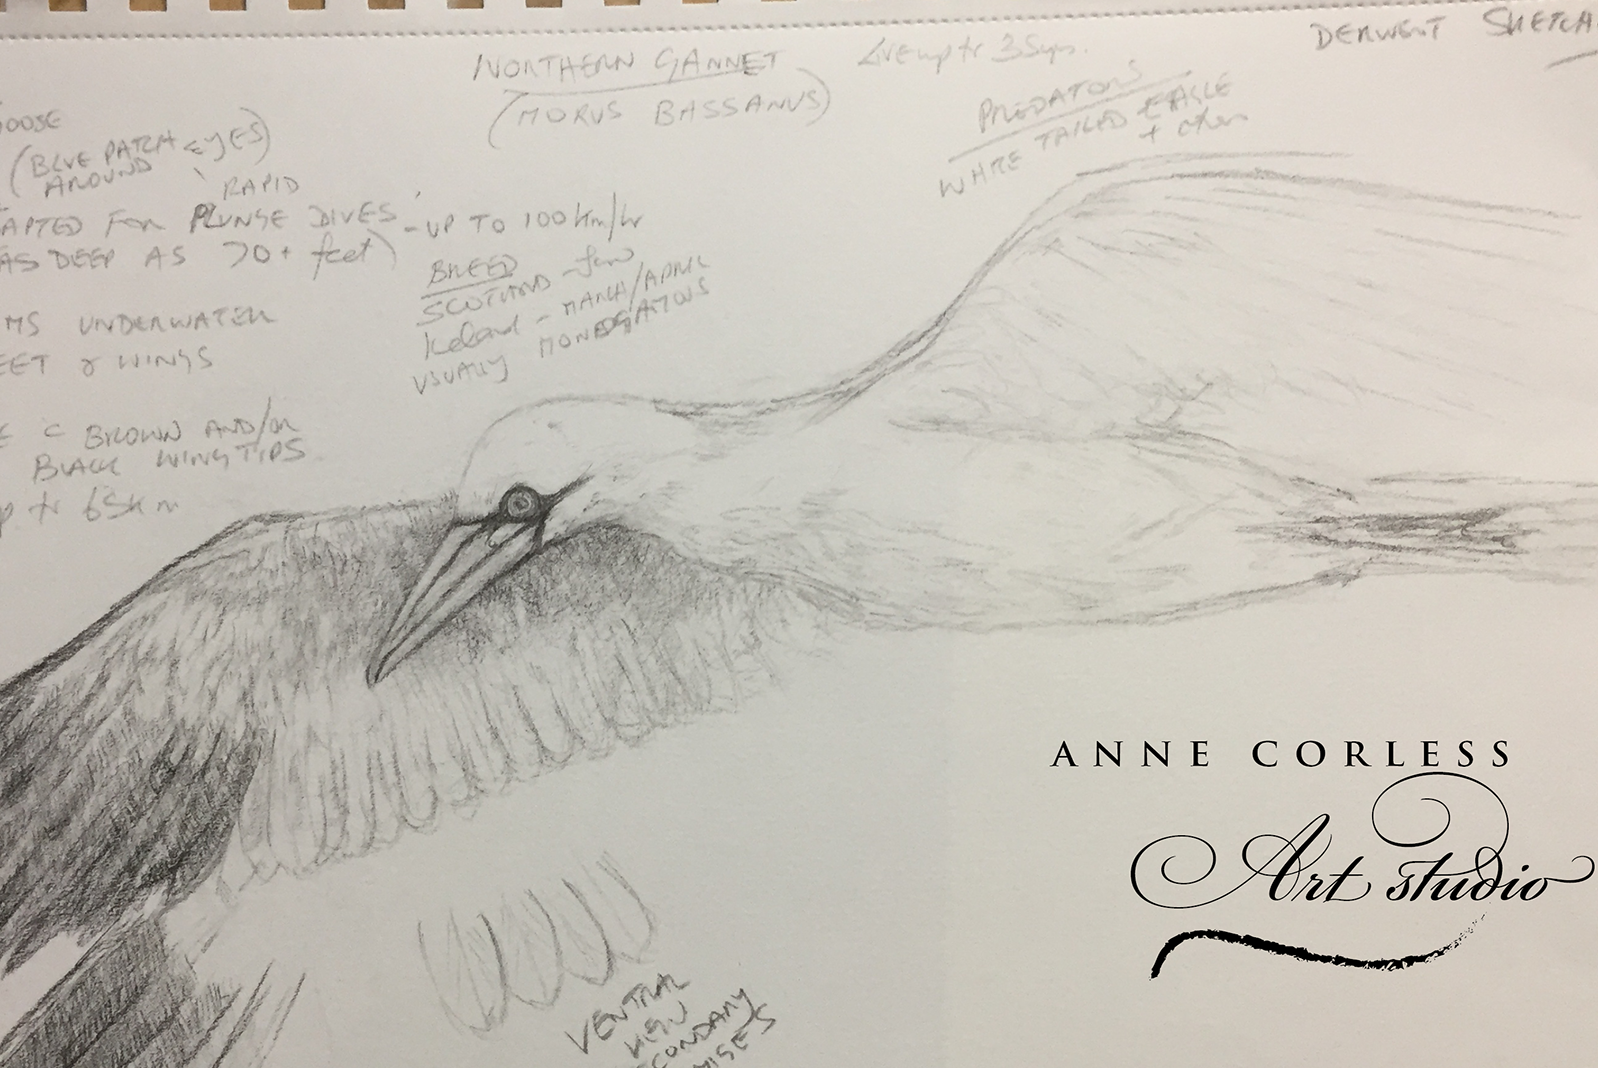 NORTHERN GANNET
(MORUS BASSANUS)
Live up to 35yrs.
DERWENT SKETCH
PREDATORS
WHITE TAILED EAGLE
+ other
GOOSE
(BLUE PATCH EYES)
AROUND
RAPID
APTED FOR PLUNGE DIVES - UP TO 100km/hr
AS DEEP AS 70+ feet)
MS UNDERWATER
EET & WINGS
BREED
SCOTLAND - few
Iceland - MARCH/APRIL
USUALLY MONOGAMOUS
E C BROWN AND/OR
BLACK WINGTIPS
p to 65km
VENTRAL
VIEW
ECONDARY
ANNE CORLESS
Art studio